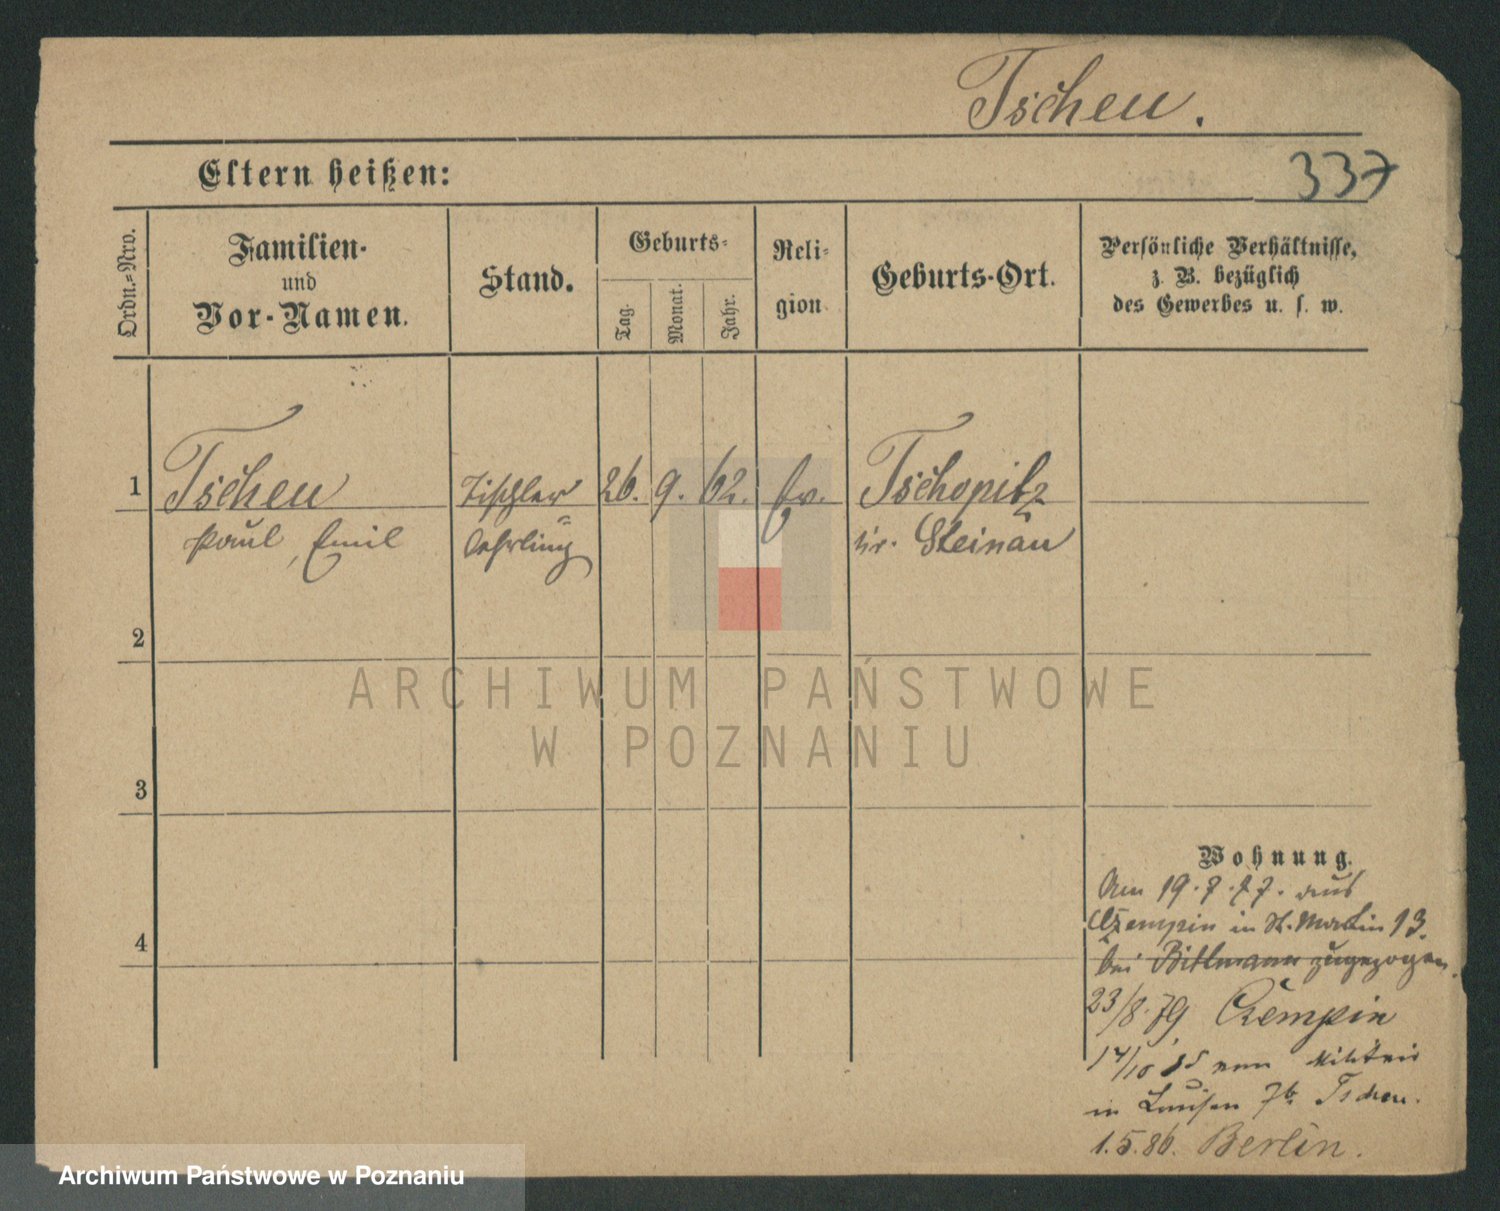 Tscheu.
Eltern heißen:
337
Ordn.-Nro.
Familien-
und
Vor-Namen.
Stand.
Geburts-
Tag.
Monat.
Jahr.
Reli-
gion.
Geburts-Ort.
Persönliche Verhältnisse,
z. B. bezüglich
des Gewerbes u. s. w.
1
Tscheu
Paul, Emil
Tischler
lehrling
26. 9. 62.
ev.
Tschopitz
Kr. Steinau
2
3
4
Wohnung.
Am 19. 7. 77. aus
Czempin in St. Martin 13.
bei Bittmann zugezogen.
23/8. 79 Czempin
14/10 85 vom Militair
in Louisen 7b Tscheu.
1.5.86. Berlin.
ARCHIWUM PAŃSTWOWE
W POZNANIU
Archiwum Państwowe w Poznaniu